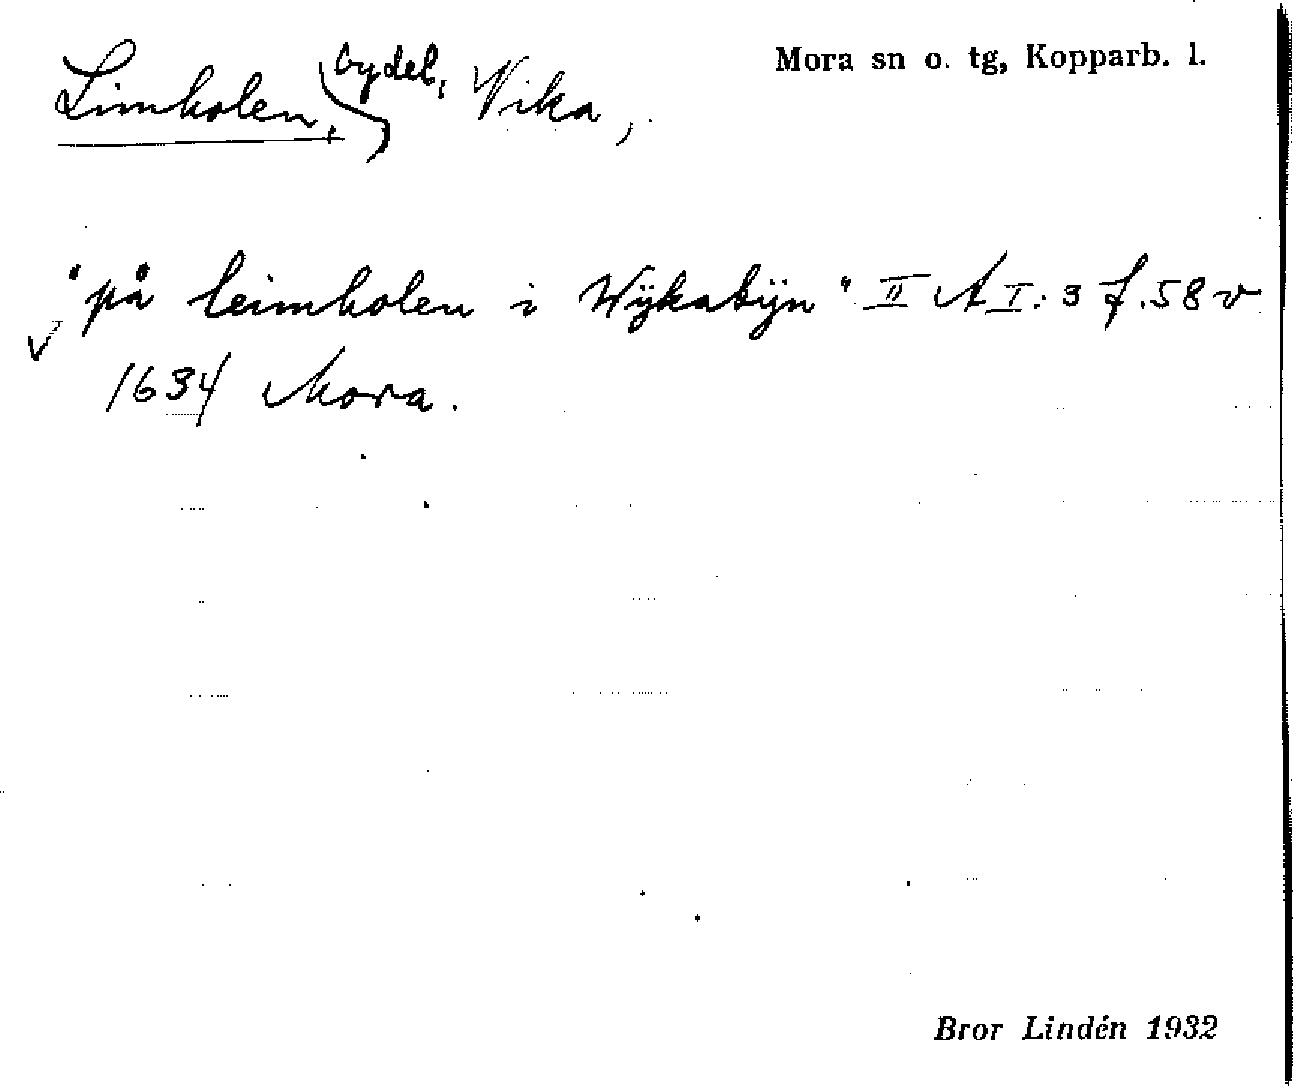 Limholen, bydel, Vika,
Mora sn o. tg, Kopparb. l.
"på leimholen i Wÿkabÿn" II A I: 3 f. 58 v
1634 Mora.
Bror Lindén 1932